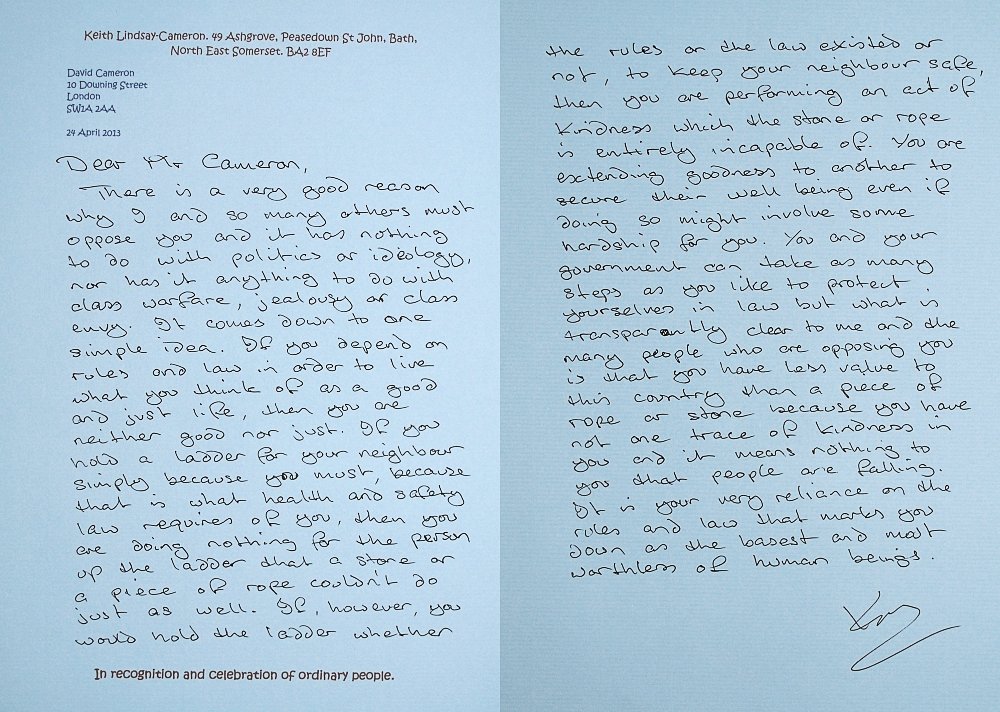 Keith Lindsay-Cameron. 49 Ashgrove, Peasedown St John, Bath,
North East Somerset. BA2 8EF
David Cameron
10 Downing Street
London
SW1A 2AA
24 April 2013
Dear Mr Cameron,
There is a very good reason
why I and so many others must
oppose you and it has nothing
to do with politics or ideology,
nor has it anything to do with
class warfare, jealousy or class
envy. It comes down to one
simple idea. If you depend on
rules and law in order to live
what you think of as a good
and just life, then you are
neither good nor just. If you
hold a ladder for your neighbour
simply because you must, because
that is what health and safety
law requires of you, then you
are doing nothing for the person
up the ladder that a stone or
a piece of rope couldn't do
just as well. If, however, you
would hold the ladder whether
In recognition and celebration of ordinary people.
the rules or the law existed or
not, to keep your neighbour safe,
then you are performing an act of
kindness which the stone or rope
is entirely incapable of. You are
extending goodness to another to
secure their well being even if
doing so might involve some
hardship for you. You and your
government can take as many
steps as you like to protect
yourselves in law but what is
transparently clear to me and the
many people who are opposing you
is that you have less value to
this country than a piece of
rope or stone because you have
not one trace of kindness in
you and it means nothing to
you that people are falling.
It is your very reliance on the
rules and law that marks you
down as the basest and most
worthless of human beings.